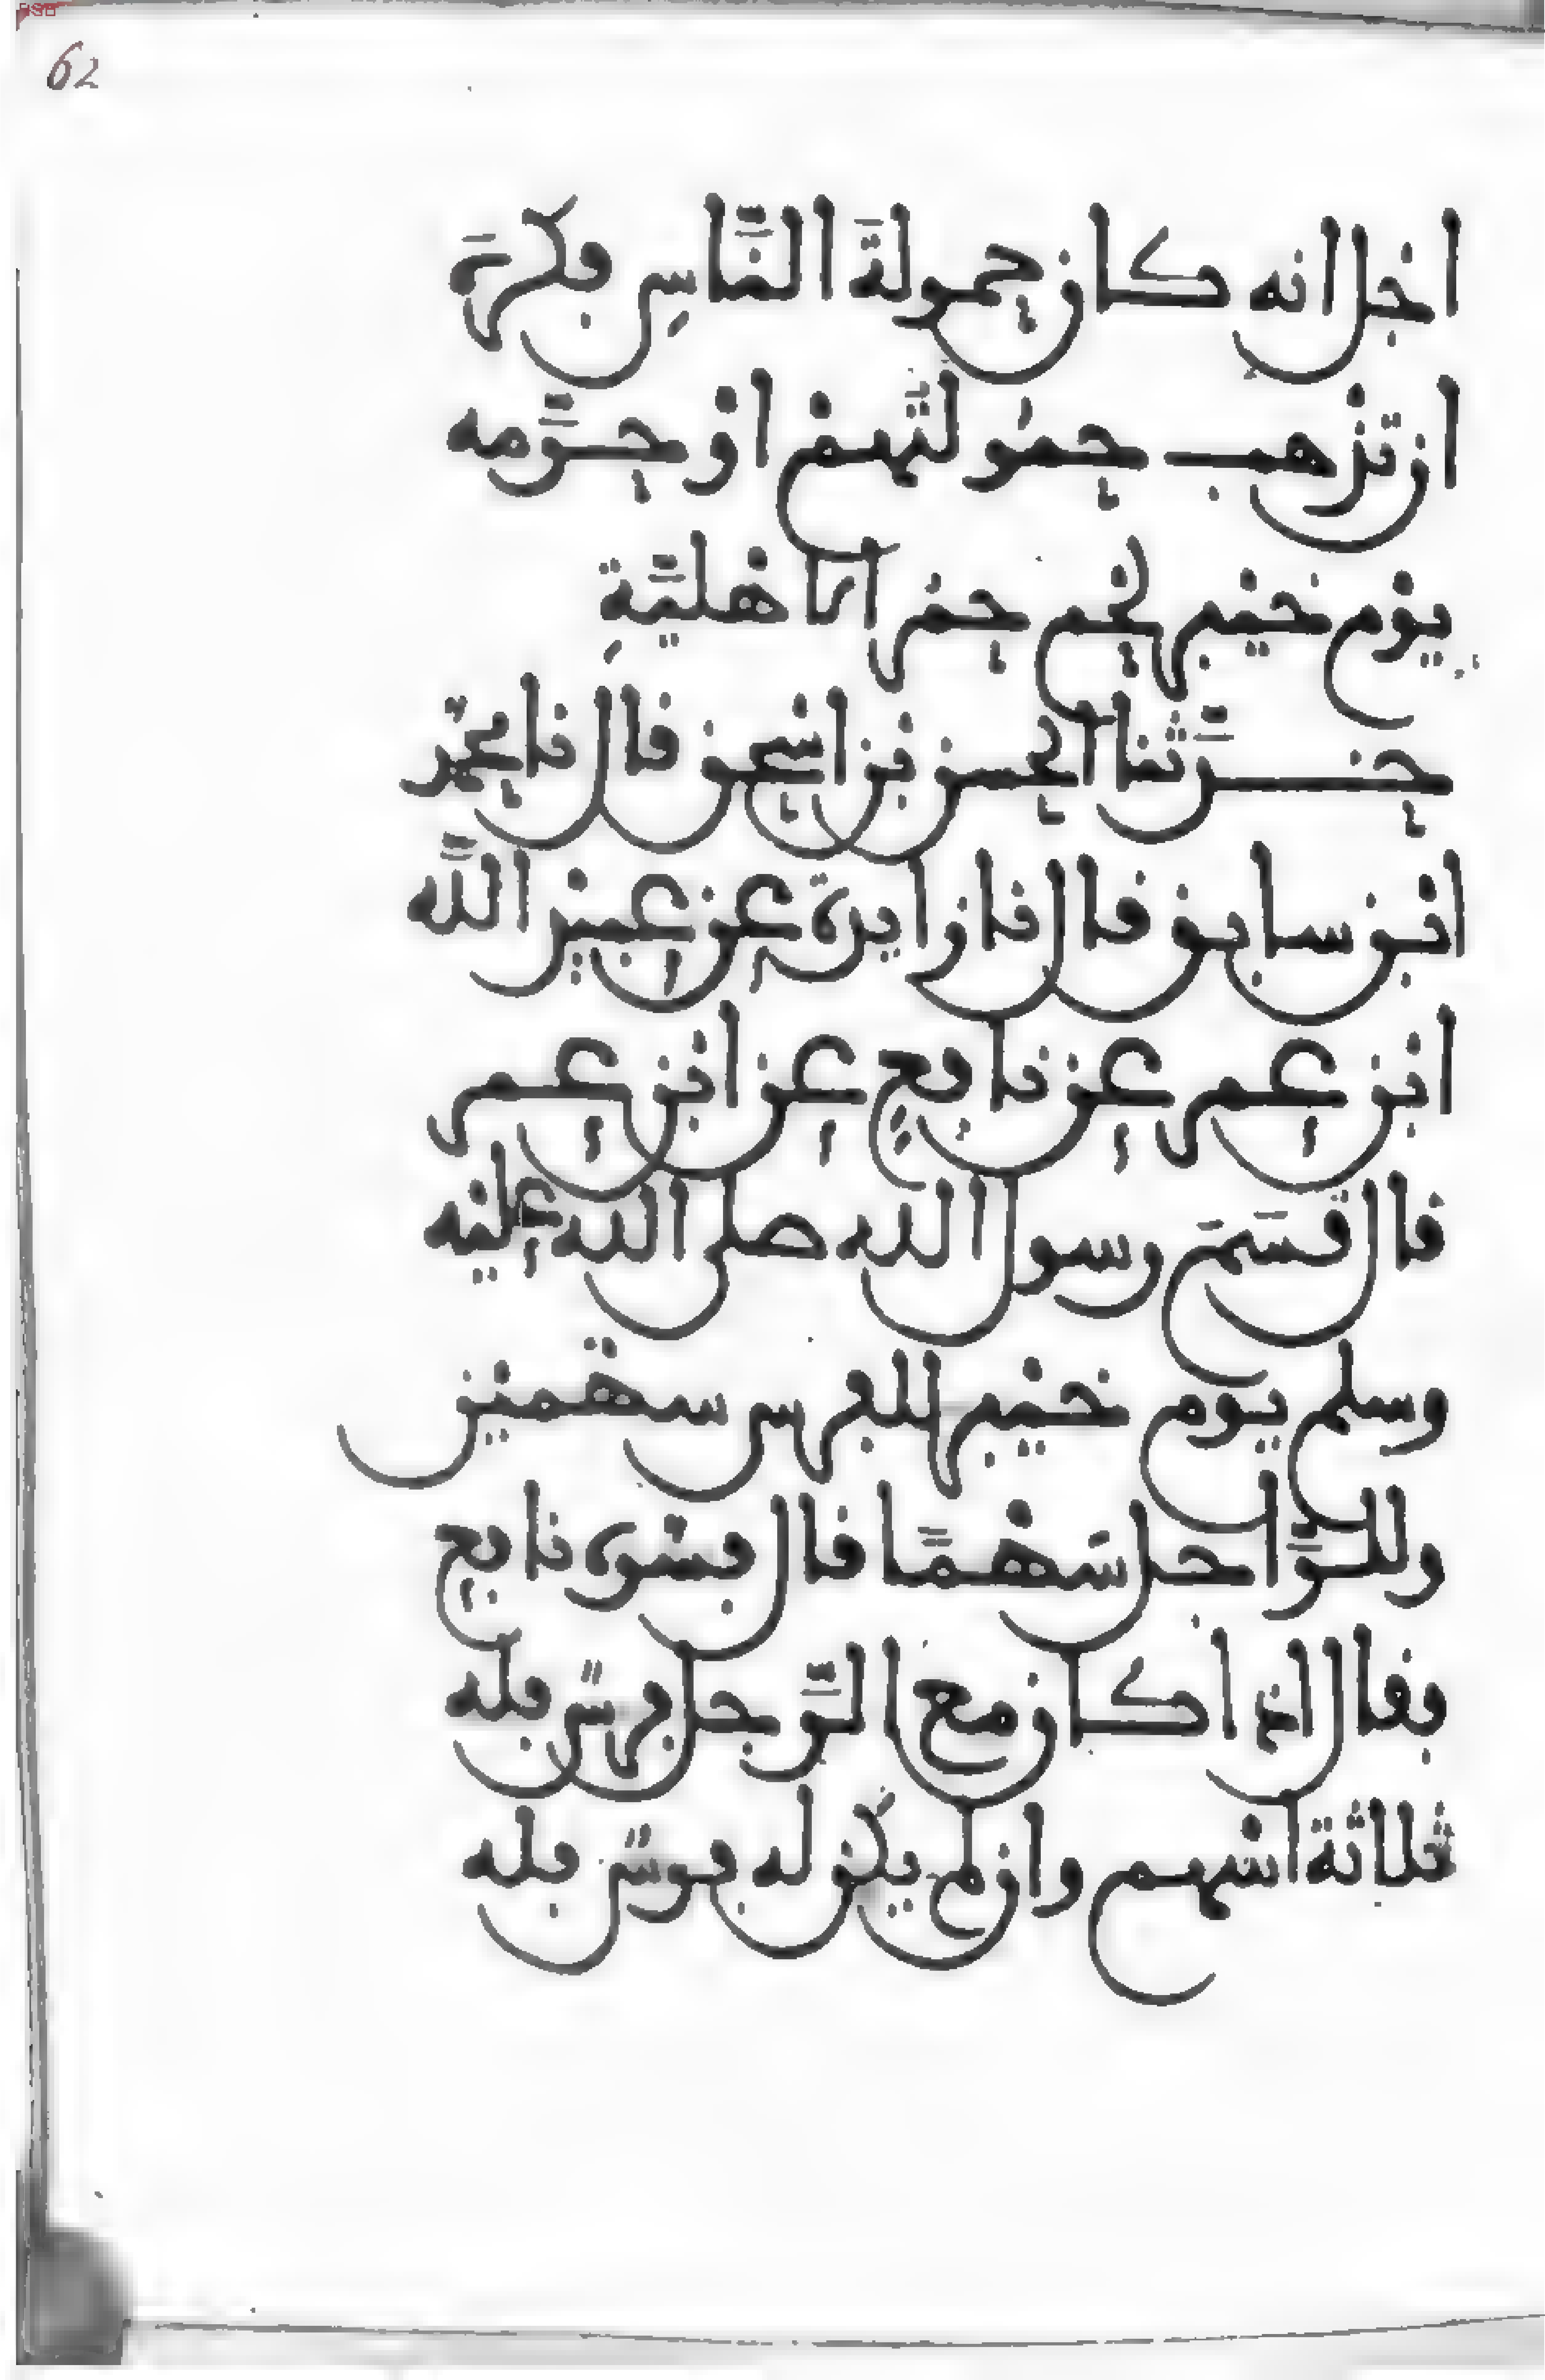 62
اجل انه كان حمولة النَّاسِ فكرهَ
ان تذهب حمولتهم او حرَّمه
يوم خيبر لحم حمر الاهليَّةِ
حدَّثنا الحسن بن اسحق قال نا محمّد
ابن سابق قال نا زايدة عن عبيد اللَّه
ابن عمر عن نافع عن ابن عمر
قال قسَمَ رسول الله صلى الله عليه
وسلم يوم خيبر للفرس سهمين
وللرَّاجل سَهْمًا قال فسّره نافع
فقال اذا كان مع الرَّجل فرسٌ فله
ثلاثة اسهم وان لم يكن له فرسٌ فله